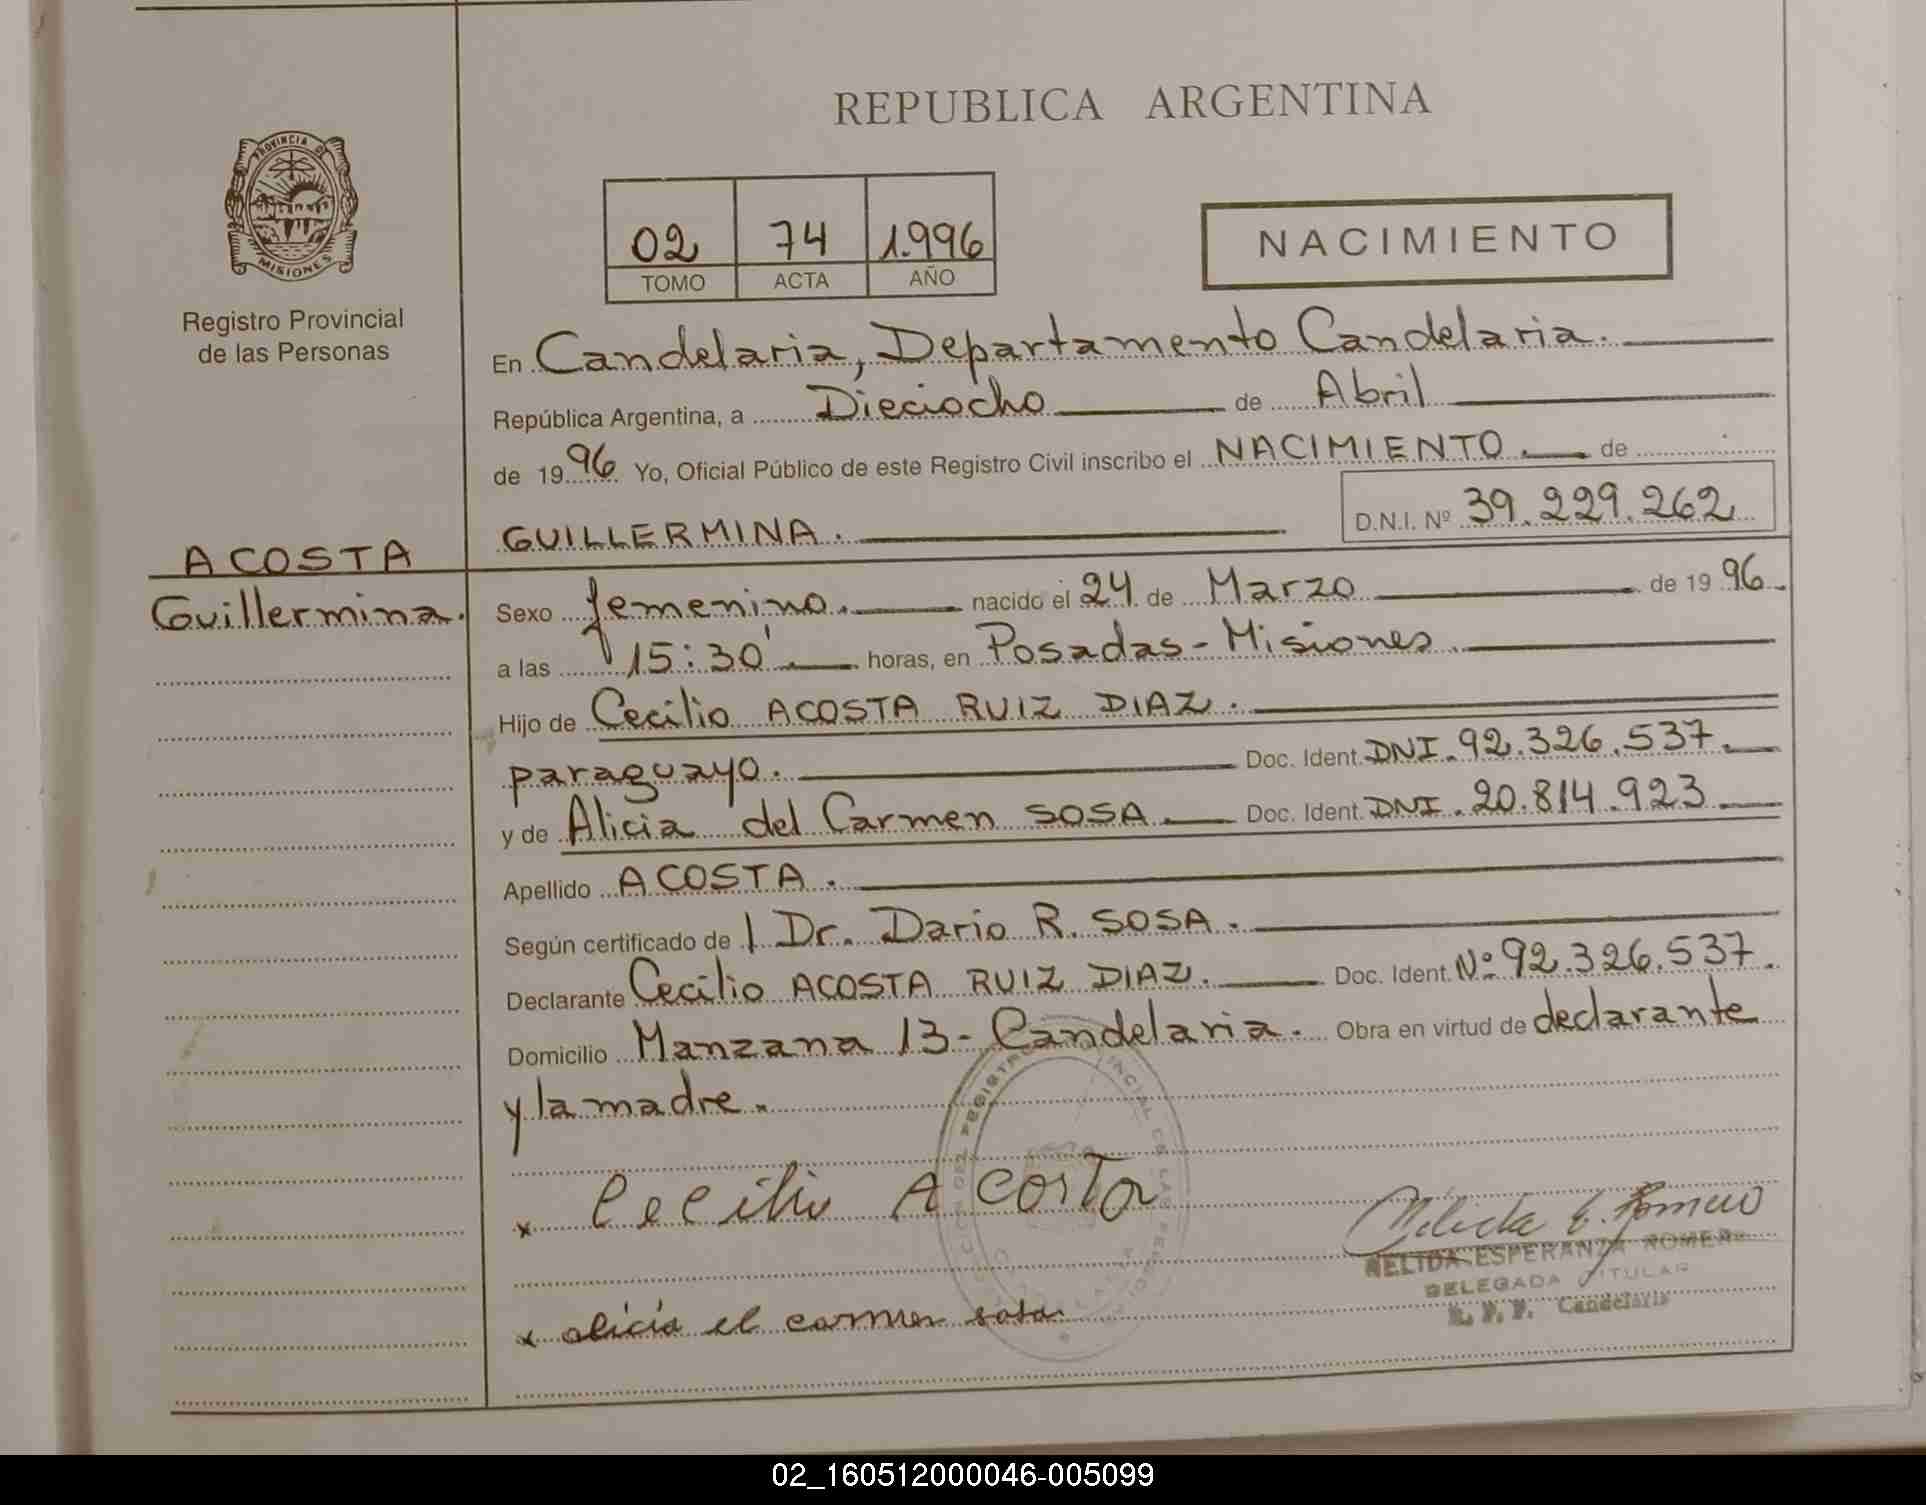 REPUBLICA ARGENTINA
PROVINCIA DE
MISIONES
Registro Provincial
de las Personas
02 74 1.996
TOMO ACTA AÑO
NACIMIENTO
En Candelaria, Departamento Candelaria.
República Argentina, a Dieciocho de Abril
de 1996 Yo, Oficial Público de este Registro Civil inscribo el NACIMIENTO de
GUILLERMINA. D.N.I. Nº 39.229.262
ACOSTA
Guillermina.
Sexo femenino. nacido el 24 de Marzo de 1996
a las 15:30' horas, en Posadas - Misiones
Hijo de Cecilio ACOSTA RUIZ DIAZ.
paraguayo. Doc. Ident. DNI. 92.326.537.
y de Alicia del Carmen SOSA. Doc. Ident. DNI. 20.814.923
Apellido ACOSTA.
Según certificado de l Dr. Dario R. SOSA.
Declarante Cecilio ACOSTA RUIZ DIAZ. Doc. Ident. Nº 92.326.537.
Domicilio Manzana 13 - Candelaria. Obra en virtud de declarante
y la madre.
x Cecilio Acosta
Nelida E. Romero
NELIDA ESPERANZA ROMERO
DELEGADA TITULAR
R. P. P. Candelaria
x alicia el carmen sosa
02_160512000046-005099